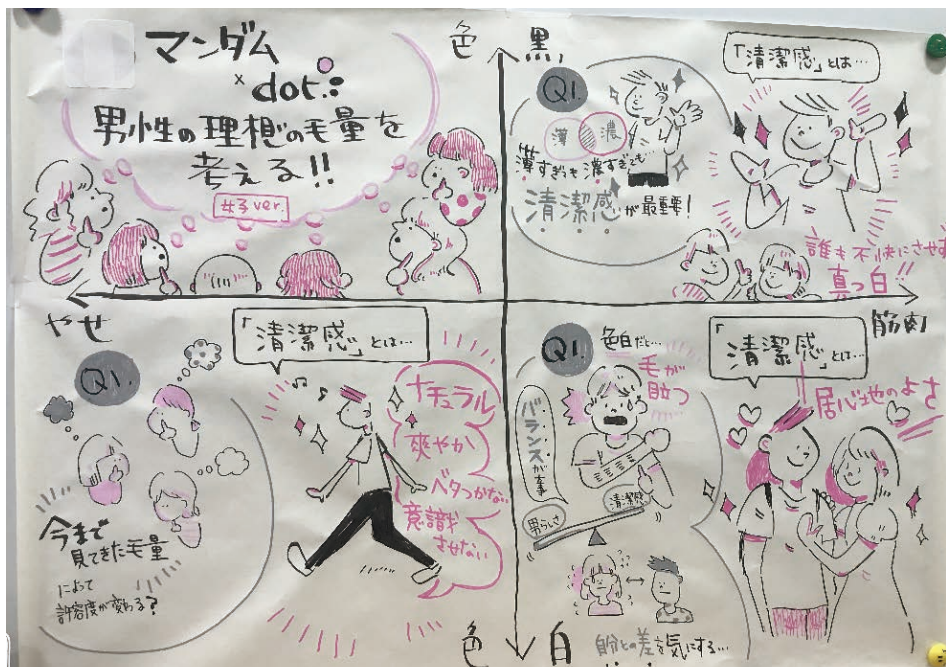 マンダム
×
dot.
男性の理想の毛量を
考える!!
女子ver.
色 黒
Q1.
薄 濃
薄すぎも 濃すぎても…
清潔感が最重要!
「清潔感」とは…
誰も不快にさせず
真っ白!!
やせ
筋肉
Q1.
今まで
見てきた毛量
によって
許容度が変わる?
「清潔感」とは…
ナチュラル
爽やか
ベタつかない
意識
させない
Q1.
色白だと…
毛が
目立つ
バランスが大事
男らしさ
清潔感
自分との差を気にする…
「清潔感」とは…
居心地のよさ
色 白